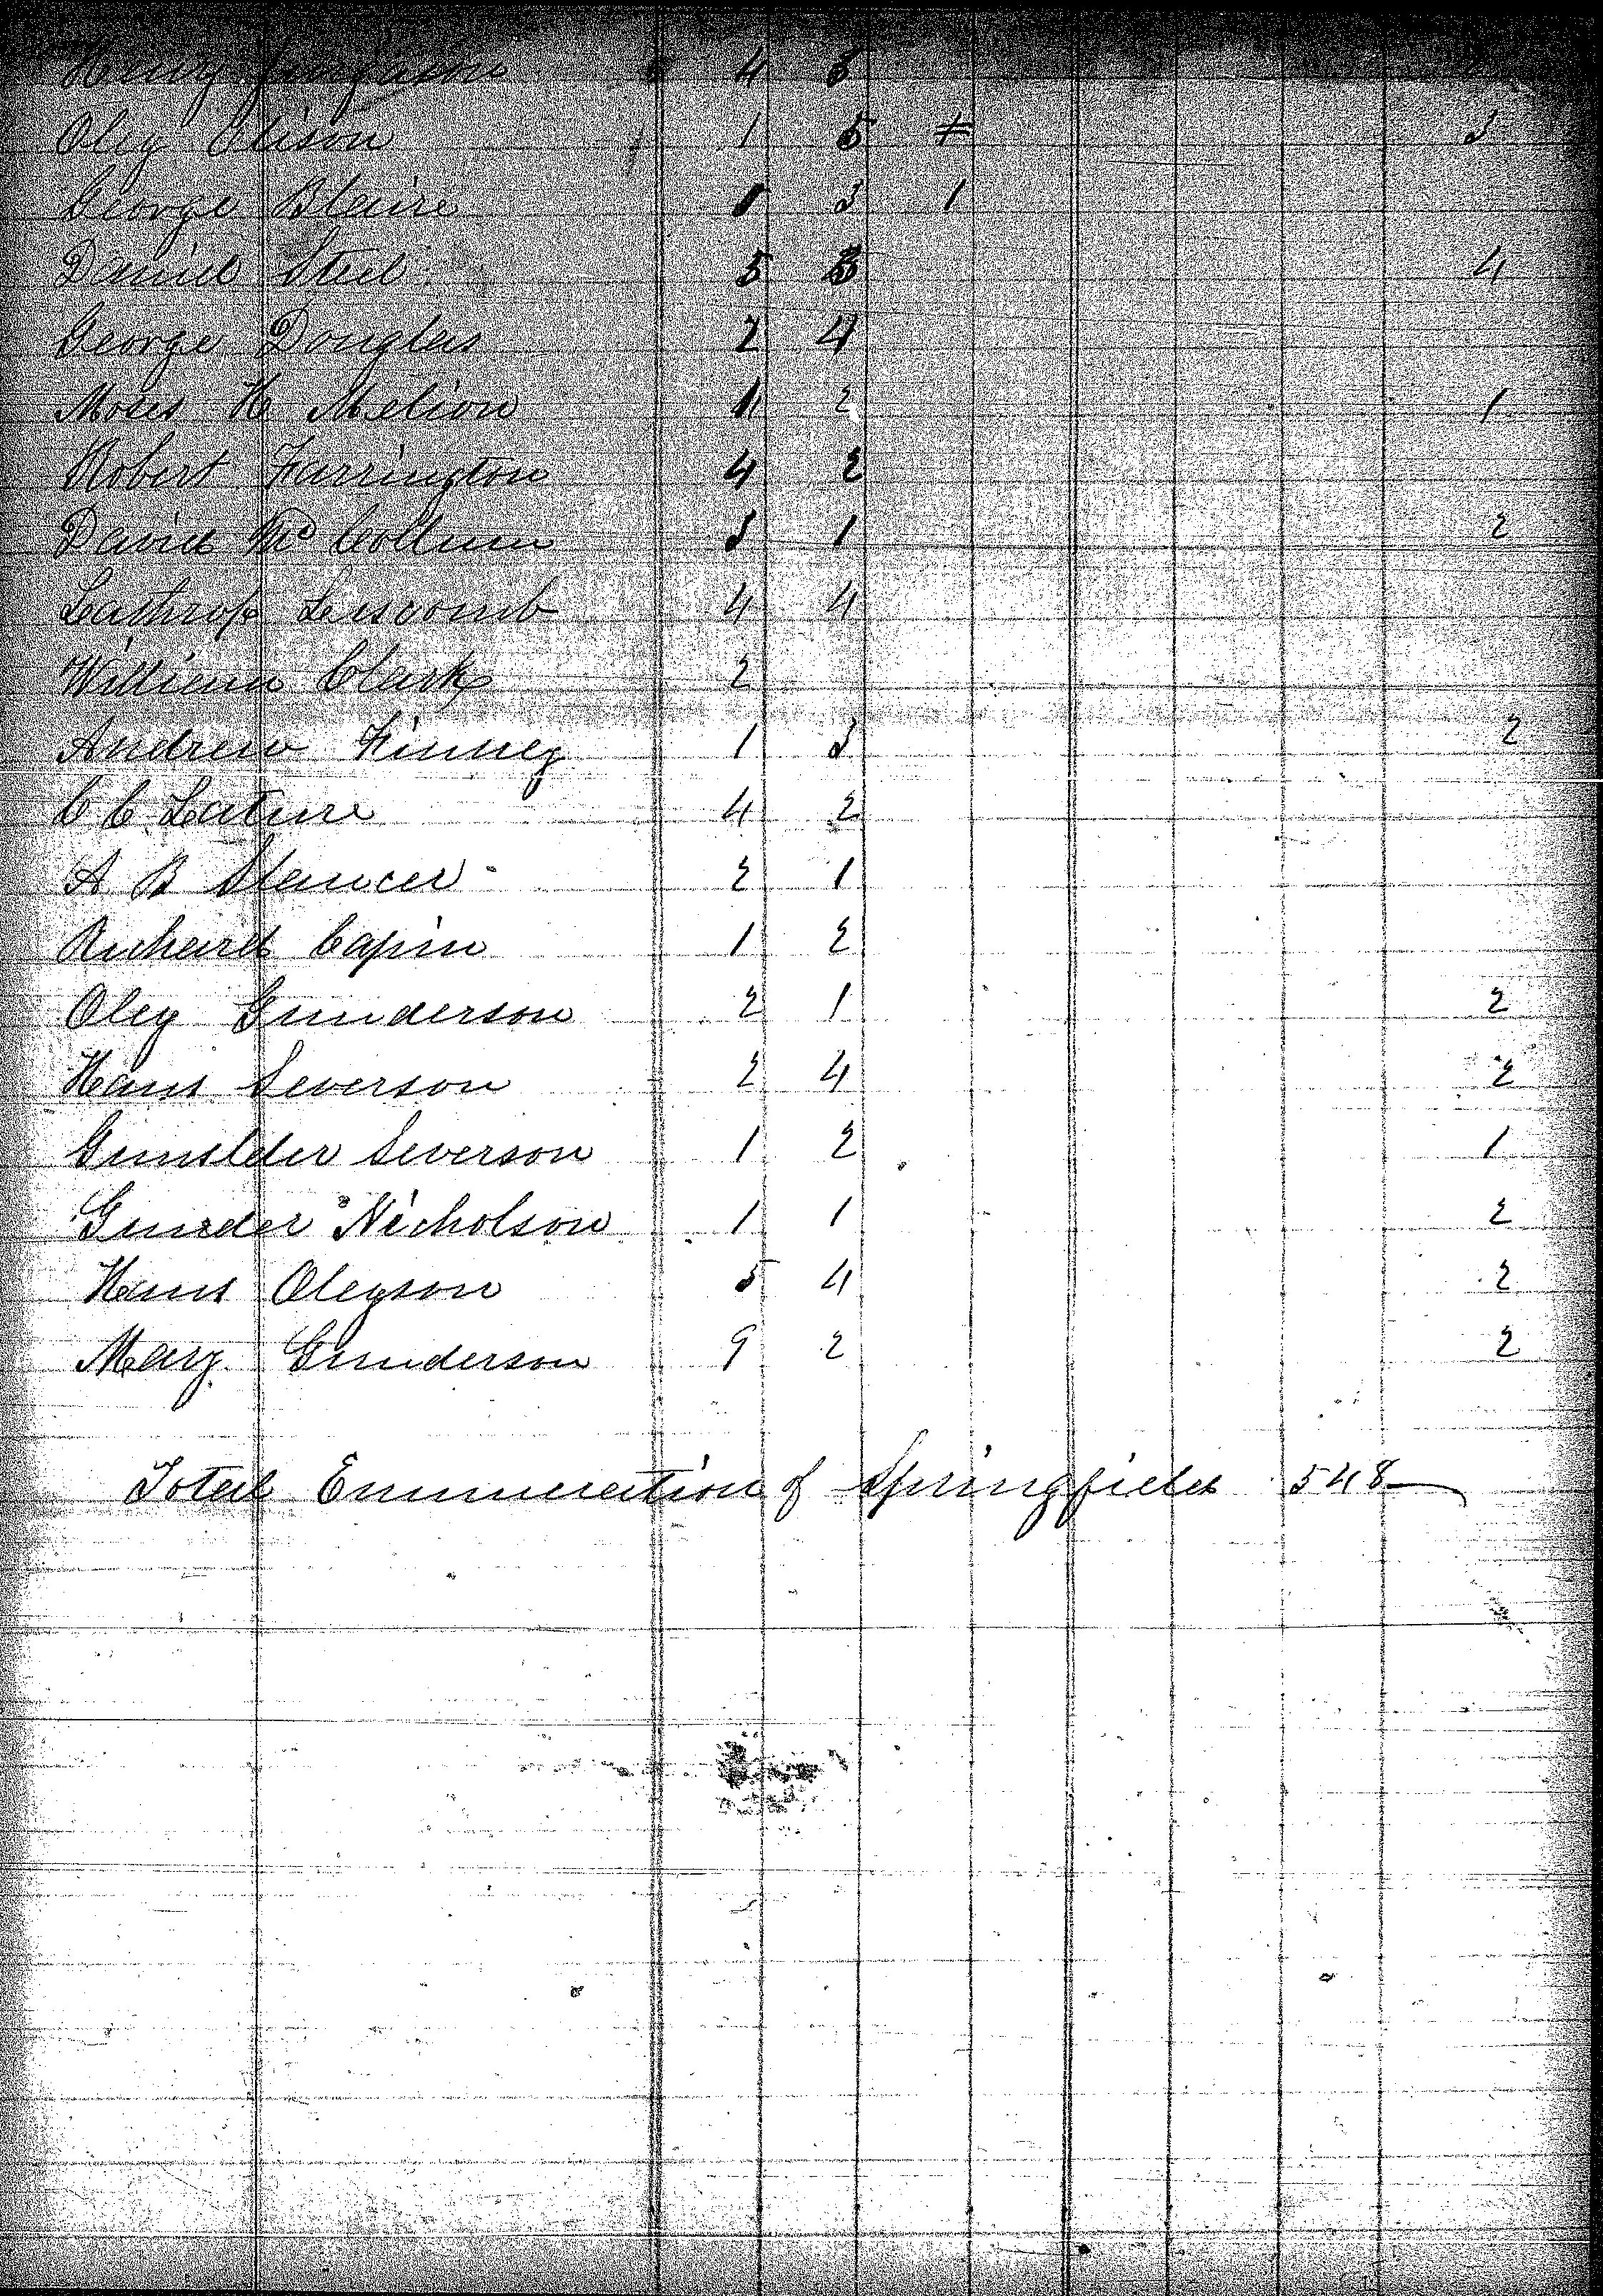 Henry 4 3
Oley Olison 1 5 3
George Blaire 3 1
Daniel Steel 5 4
George Douglas 2 4
Moses H Melion 1 2 1
Robert Farrington 4 2
David McCollum 3 1 2
Lathrop Luscomb 4 4
William Clark 2
Andrew Finney 1 3 2
C C Lature 4 2
A B Stancer 2 1
Richard Capin 1 2
Oley Gunderson 2 1 2
Hans Severson 2 4 2
Severson 1 2 1
Gunder Nicholson 1 1 2
Hans Oleyson 5 4 2
Mary Gunderson 9 2 2
Total Enumeration of Springfield 548